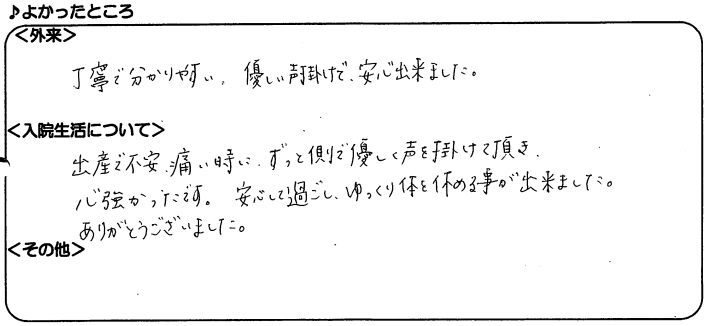 ♪よかったところ
＜外来＞
丁寧で分かりやすい。優しい声掛けで、安心出来ました。
＜入院生活について＞
出産で不安、痛い時に、ずっと側で優しく声を掛けて頂き、
心強かったです。安心して過ごし、ゆっくり体を休める事が出来ました。
ありがとうございました。
＜その他＞